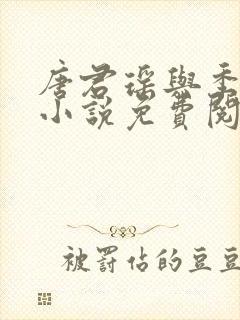 唐君瑤與
小說免費閱
被罰佔的豆豆